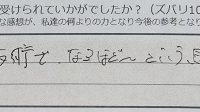 受けられていかがでしたか？（ズバリ10
な感想が、私達の何よりの力となり今後の参考となり
で なるほど という